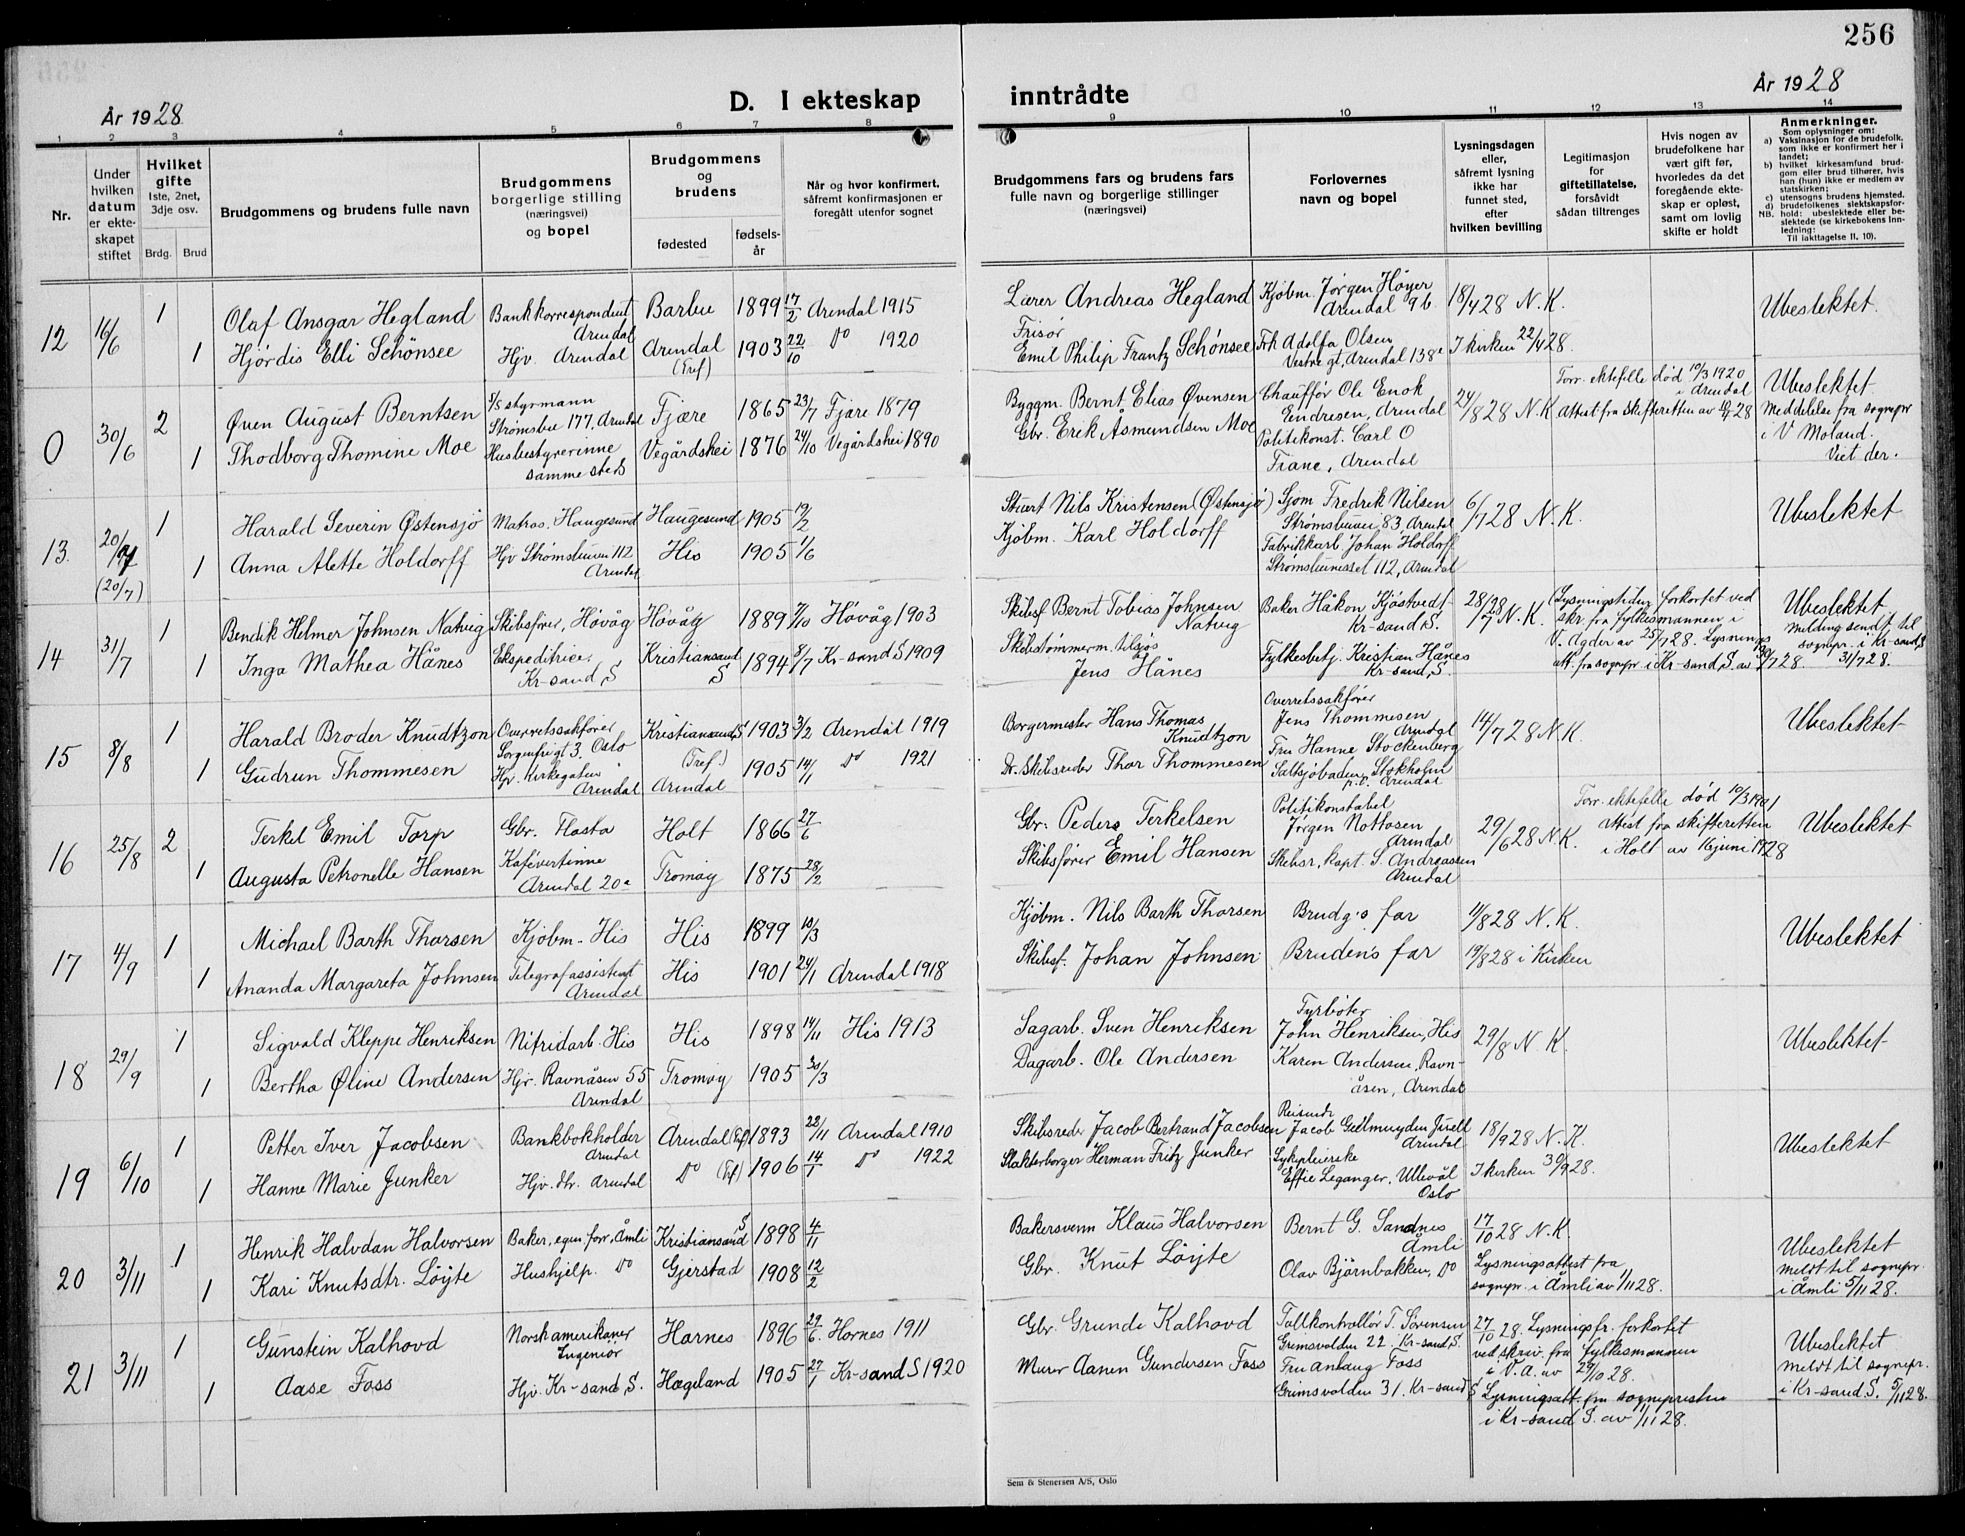 256
År 1928
D. I ekteskap
inntrådte
År 1928
1 2 3 4 5 6 7 8 9 10 11 12 13 14
Nr.
Under hvilken datum er ekte-skapet stiftet
Hvilket gifte
1ste, 2net, 3dje osv.
Brdg. Brud
Brudgommens og brudens fulle navn
Brudgommens borgerlige stilling (næringsvei) og bopel
Brudgommens og brudens
fødested
fødsels-år
Når og hvor konfirmert, såfremt konfirmasjonen er foregått utenfor sognet
Brudgommens fars og brudens fars fulle navn og borgerlige stillinger (næringsvei)
Forlovernes navn og bopel
Lysningsdagen eller, såfremt lysning ikke har funnet sted, efter hvilken bevilling
Legitimasjon for giftetillatelse, forsåvidt sådan tiltrenges
Hvis nogen av brudefolkene har vært gift før, hvorledes da det foregående ekte-skap er opløst, samt om lovlig skifte er holdt
Anmerkninger.
Som oplysninger om:
a) Vaksinasjon for de brudefolk, som ikke er konfirmert her i landet;
b) hvilket kirkesamfund brud-gom eller brud tilhører, hvis han (hun) ikke er medlem av statskirken;
c) utensogns brudens hjemsted.
d) brudefolkenes slektskapsfor-hold: ubeslektede eller be-slektede (se kirkebokens Inn-ledning:
NB. Til iakttagelse II, 10).
12 16/6 1 Olaf Ansgar Hegland Bankkorrespondent Arendal Barbu 1899 17/2 Arendal 1915 Lærer Andreas Hegland Kjøbm. Jørgen Høyer Arendal 96 18/4 28 N.K. Ubeslektet.
1 Hjørdis Elli Schönsee Hjv. Arendal Arendal (Tref) 1903 22/10 Do 1920 Frisør Emil Philip Frantz Schönsee Frk Adolfa Olsen Vestre gt, Arendal 138e I kirken 22/4 28.
0 30/6 2 Øven August Berntsen S/S styrmann Strømsbu 177, Arendal Fjære 1865 23/7 Fjære 1879 Byggm. Bernt Elias Øvensen Chauffør Ole Enok Eindresen, Arendal 24/8 28 N.K. Forr. ektefelle død 10/3 1920 i Arendal Attest fra skifteretten av 28 Ubeslektet Meddelelse fra sognepr i V Moland. Viet der.
1 Thodborg Thomine Moe Husbestyrerinne samme sted Vegårdshei 1876 24/10 Vegårdshei 1890 Gbr. Erik Åsmundsen Moe Politikonst. Carl O Frane, Arendal
13. 20/7 (20/7) 1 Harald Severin Østensjø Matros. Haugesund Haugesund 1905 19/2 Stuart Nils Kristensen (Østensjø) Sjøm Fredrik Nilsen Strømsbuvei 83 Arendal 6/7 28 N.K. Ubeslektet
1 Anna Alette Holdorff Hjv Strømsbuvei 112 Arendal His 1905 1/6 Kjøbm. Karl Holdorff Fabrikkarb. Johan Holdorff Strømsbuneset 112, Arendal
14 31/7 1 Bendik Helmer Johnsen Natvig Skibsfører, Høvåg Høvåg 1889 7/10 Høvåg 1903 Skibsf Bernt Tobias Johnsen Natvig Baker Håkon Kjöstvedt Kr-sand S. 28/7 28 N.K. Lysningstiden forkortet ved skr. fra fylkesmannen i V. Agder av 25/7 28. Lysnings att. fra sognepr. i Kr-sand, S. av 30/7 28. Ubeslektet melding sendt til sognepr. i Kr-sand, S 31/7 28.
1 Inga Mathea Hånes Ekspeditrice, Kr-sand, S Kristiansand S 1894 8/7 Kr-sand S 1909 Skibstømmerm. tilsjøs Jens Hånes Fylkesbetj. Kristian Hånes Kr-sand, S.
15 8/8 1 Harald Broder Knudtzon Overretssakfører Sorgenfrigt 3. Oslo Kristiansand S 1903 3/2 Arendal 1919 Borgermester Hans Thomas Knudtzon Overretssakfører Jens Thommesen Arendal 14/7 28 N.K. Ubeslektet
1 Gudrun Thommesen Hjv. Kirkegaten Arendal (Tref.) Arendal 1905 14/1 Do 1921 Dr. Skibsreder Thor Thommesen Fru Hanne Stockenberg Saltsjøbaden, Stokholm p.t. Arendal
16 25/8 2 Terkel Emil Torp Gbr. Flosta Holt 1866 27/6 Gbr. Peders Terkelsen Politikonstabel Jørgen Nottosen Arendal 29/6 28 N.K. Forr. ektefelle død 10/3 1901 Attest fra skifteretten i Holt av 16 juni 1928 Ubeslektet
1 Augusta Petronelle Hansen Kafévertinne Arendal 20a Tromøy 1875 28/2 Skibsfører Emil Hansen Skibsr, kapt. S. Andreassen Arendal
17 4/9 1 Michael Barth Thorsen Kjøbm. His His 1899 10/3 Kjøbm. Nils Barth Thorsen Brudg's far 11/8 28 N.K. Ubeslektet
1 Ananda Margareta Johnsen Telegrafassistent Arendal His 1901 24/1 Arendal 1918 Skibsf. Johan Johnsen Brudens far 19/8 28 i Kirken
18 29/9 1 Sigvald Kleppe Henriksen Nitridarb. His His 1898 14/11 His 1913 Sagarb. Sven Henriksen Fyrbøter John Henriksen, His 29/8 N.K. Ubeslektet
1 Bertha Øline Andersen Hjv. Ravnåsen 55 Arendal Tromøy 1905 30/3 Dagarb. Ole Andersen Karen Andersen, Ravn-åsen, Arendal
19 6/10 1 Petter Iver Jacobsen Bankbokholder Arendal Arendal 1893 22/11 Arendal 1910 Skibsreder Jacob Bertrand Jacobsen Reisende Jacob Geelmuyden Juell Arendal 18/9 28 N.K. Ubeslektet
1 Hanne Marie Junker Hjv. dtr. Arendal Do 1906 14/1 Do 1922 Slakterborger Herman Fritz Junker Sykepleierske Effie Leganger, Ullevål Oslo I kirken 30/9 28.
20 3/11 1 Henrik Halvdan Halvorsen Baker, egen forr, Åmli Kristiansand S 1898 4/11 Bakersvenn Klaus Halvorsen Bernt G. Sandnes Åmli 17/10 28 N.K. Ubeslektet meldt til sognepr. i Åmli 5/11 28.
1 Kari Knutsdtr. Löyte Hushjelp. Do Gjerstad 1908 12/2 Gbr. Knut Löyte Olav Bjørnbakken, Do Lysningsattest fra sognepr. i Åmli av 1/11 28.
21 3/11 1 Gunstein Kalhovd Norskamerikaner Ingeniør Hornes 1896 29/6 Hornes 1911 Gbr. Grunde Kalhovd Tollkontrollør T. Sørensen Grimsvolden 22 Kr-sand S. 27/10 28. Lysningsfr. forkortet ved skriv. fra fylkesmannen i V.A. av 29/10 28. Ubeslektet meldt til sognepr. i Kr-sand S. 5/11 28.
1 Aase Foss Hjv. Kr-sand, S. Hægeland 1905 27/1 Kr-sand S 1920 Murer Aanen Gundersen Foss Fru Anlaug Foss Grimsvolden 31. Kr-sand S Lysningsatt. fra sognepresten i Kr-sand S. av 1/11 28.
Sem & Stenersen A/S, Oslo